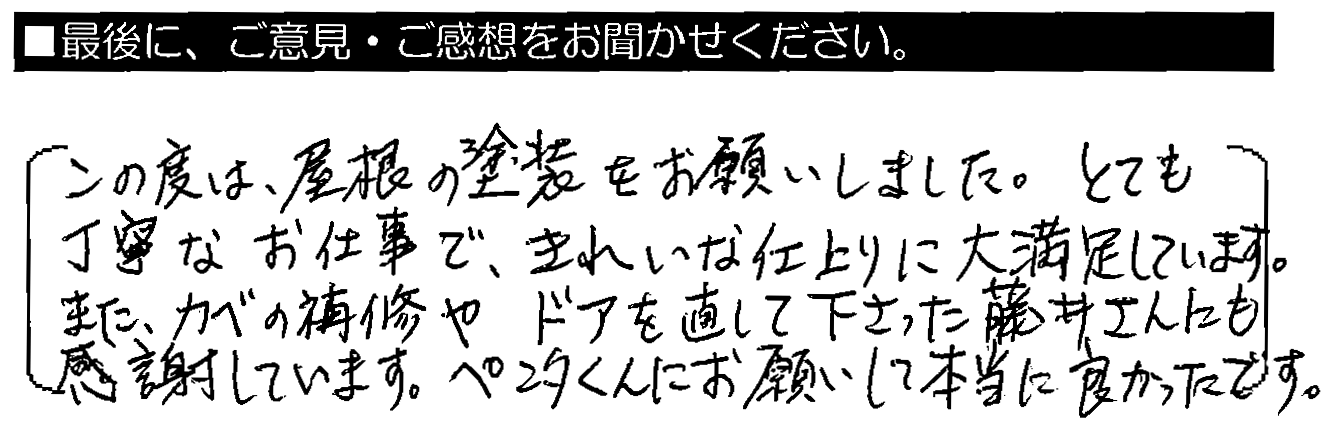 ■最後に、ご意見・ご感想をお聞かせください。
この度は、屋根の塗装をお願いしました。とても
丁寧なお仕事で、きれいな仕上りに大満足しています。
また、カベの補修やドアを直して下さった藤井さんにも
感謝しています。ペンタくんにお願いして本当に良かったです。